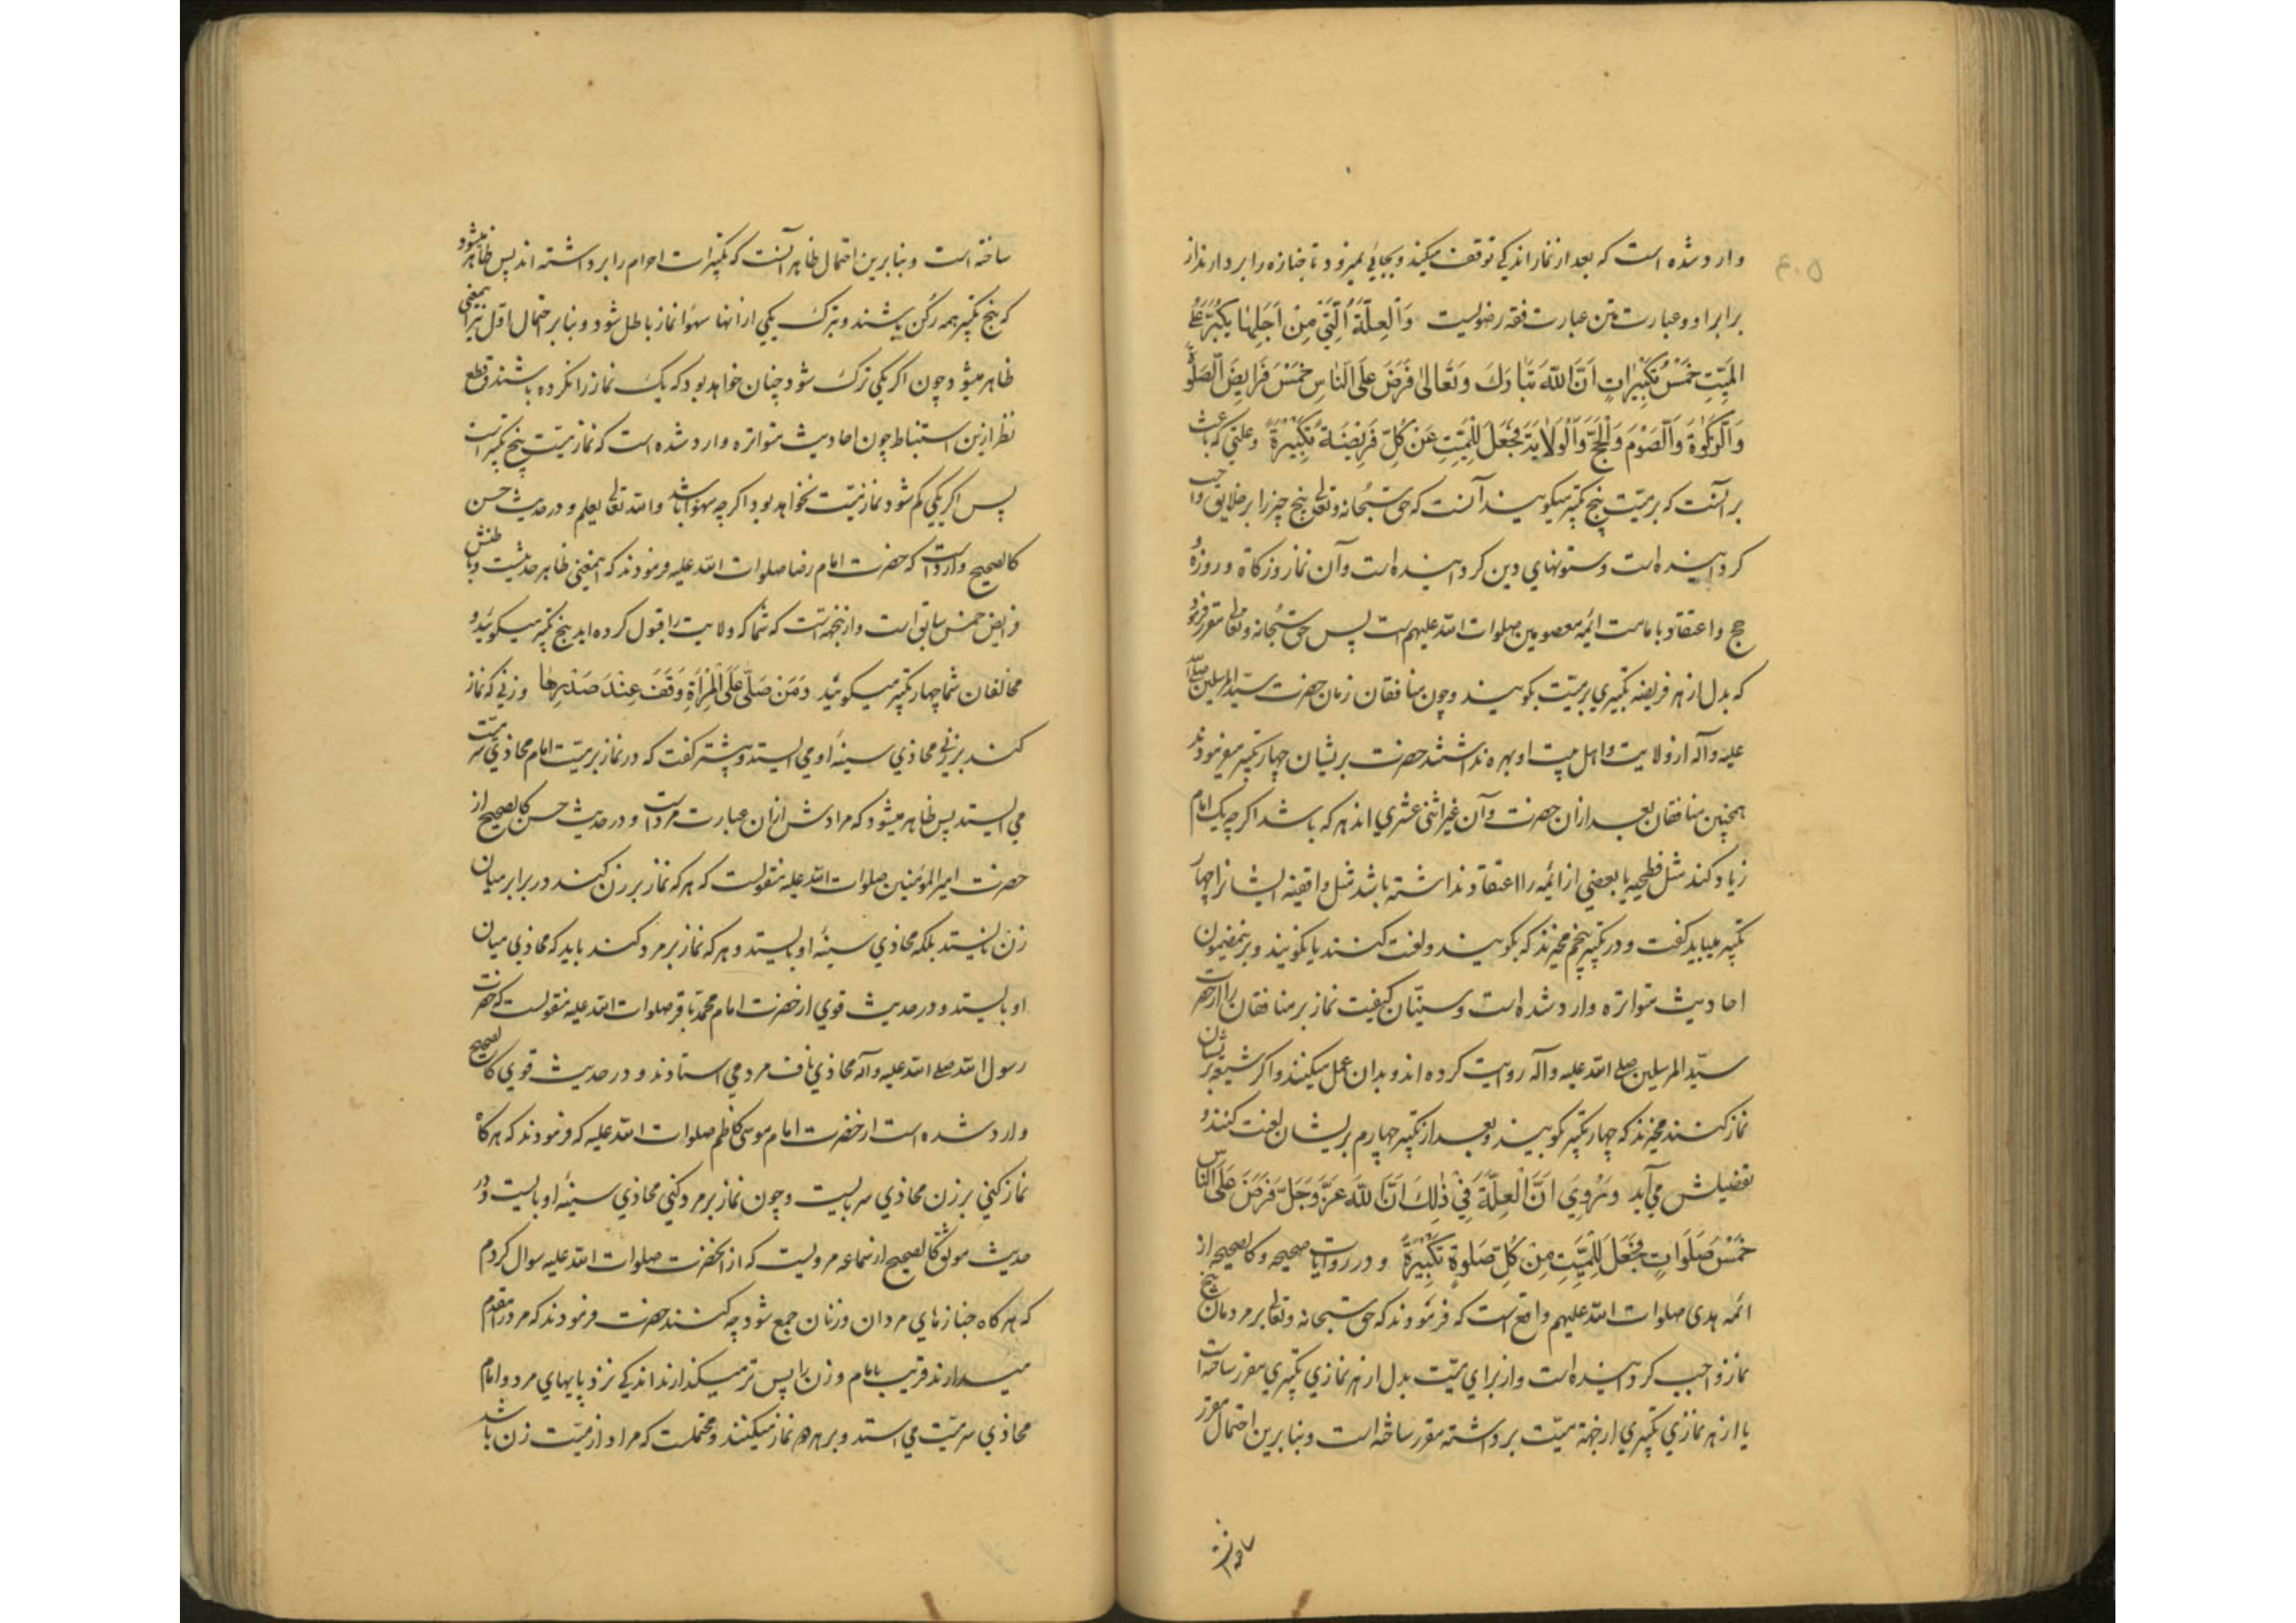 وارد شده است که بعد از نماز اندکی توقف میکنند و بجائی نمیرود تا جنازه را بردارند از
برابر او و عبارت متن عبارت فقه رضویست وَالْعِلَّةُ الَّتِي مِنْ أَجَلِهَا يُكَبَّرُ عَلَی
الْمَيِّتِ خَمْسُ تَكْبِيرَاتٍ اَنَّ اللهَ تَبَارَكَ وَتَعَالٰی فَرَضَ عَلَی النَّاسِ خَمْسَ فَرَايِضَ الصَّلٰوةَ
وَالزَّكٰوةَ وَالصَّوْمَ وَالْحَجَّ وَالْوَلَايَةَ فَجَعَلَ لِلْمَيِّتِ عَنْ كُلِّ فَرِيضَةٍ تَكْبِيرَةً و علتی که باعث
بر آنست که بر میّت پنج تکبیر میکویند آنست که حق سبحانه و تعالی پنج چیز را بر خلایق واجب
کردانیده است و ستونهای دین کردانیده است و آن نماز و زکاة و روزه و
حج و اعتقاد بامامت ائمه معصومین صلوات الله علیهم است پس حق سبحانه و تعالی مقرر فرمود
که بدل از هر فریضه تکبیری بر میّت بکویند و چون منافقان زمان حضرت سیّد المرسلین صلی الله
علیه و آله از ولایت و اهل بیت او بهره نداشتند حضرت بریشان چهار تکبیر میفرمودند
همچنین منافقان بعد از ان حضرت و آن غیر اثنی عشری اند هر که باشد اکرچه یک امام
زیاد کنند مثل فطحیه یا بعضی از ائمه را اعتقاد نداشته باشد مثل واقفیه ایشانرا چهار
تکبیر میباید کفت و در تکبیر پنجم مخیرند که بکویند و لعنت کنند یا نکویند و برینمضمون
احادیث متواتره وارد شده است و سنیّان کیفیت نماز بر منافقان را از حضرت
سیّد المرسلین صلی الله علیه و آله روایت کرده اند و بدان عمل میکنند و اکر شیعه بریشان
نماز کنند مخیرند که چهار تکبیر بکویند و بعد از تکبیر چهارم بریشان لعنت کنند و
تفصیلش می آید وَرُوِيَ اَنَّ الْعِلَّةَ فِي ذٰلِكَ اَنَّ اللهَ عَزَّ وَجَلَّ فَرَضَ عَلَی النَّاسِ
خَمْسَ صَلَوَاتٍ فَجَعَلَ لِلْمَيِّتِ مِنْ كُلِّ صَلٰوةٍ تَكْبِيرَةً و در روایات صحیحه و کالصحیحه از
ائمه هدی صلوات الله علیهم واقع است که فرمودند که حق سبحانه و تعالی بر مردمان پنج
نماز واجب کردانیده است و از برای میّت بدل از هر نمازی تکبیری مقرر ساخته است
یا از هر نمازی تکبیری از جهة میّت برداشته مقرر ساخته است و بنابرین احتمال مقرر
ساخته است
ساخته است و بنابرین احتمال ظاهر آنست که تکبیرات احرام را برداشته اند پس ظاهر میشود
که پنج تکبیر همه رکن باشند و بترک یکی از انها سهوا نماز باطل شود و بنابر احتمال اوّل نیز اینمعنی
ظاهر میشود چون اکر یکی ترک شود چنان خواهد بود که یک نماز را نکرده باشند و قطع
نظر ازین استنباط چون احادیث متواتره وارد شده است که نماز میّت پنج تکبیر است
پس اکر یکی کم شود نماز میّت نخواهد بود اکرچه سهوا باشد والله تعالی یعلم و در حدیث حسن
کالصحیح وارد است که حضرت امام رضا صلوات الله علیه فرمودند که اینمعنی ظاهر حدیثست و باطنش
فرایض خمس سابق است و از ینجهتست که شما که ولایت را قبول کرده اید پنج تکبیر میکوئید و
مخالفان شما چهار تکبیر میکوئید وَمَنْ صَلَّی عَلَی الْمَرْأَةِ وَقَفَ عِنْدَ صَدْرِهَا و زنی که نماز
کنند بر زنی محاذی سینه او می ایستد و پیشتر کفت که در نماز بر میّت امام محاذی سر میّت
می ایستد پس ظاهر میشود که مرادش ازان عبارت مرد است و در حدیث حسن کالصحیح از
حضرت امیر المؤمنین صلوات الله علیه منقولست که هر که نماز بر زن کند در برابر میان
زن نایستد بلکه محاذی سینه او بایستد و هر که نماز بر مرد کند باید که محاذی میان
او بایستد و در حدیث قوی از حضرت امام محمد باقر صلوات الله علیه منقولست که حضرت
رسول الله صلی الله علیه و آله محاذی ناف مرد می استادند و در حدیث قوی کالصحیح
وارد شده است از حضرت امام موسی کاظم صلوات الله علیه که فرمودند که هرکاه
نماز کنی بر زن محاذی سر بایست و چون نماز بر مرد کنی محاذی سینه او بایست و در
حدیث موثق کالصحیح از سماعه مرویست که از آنحضرت صلوات الله علیه سوال کردم
که هر کاه جنازهای مردان و زنان جمع شود چه کنند حضرت فرمودند که مرد را مقدم
میدارند قریب بامام و زن را پس تر میکذارند اندکی نزد پایهای مرد و امام
محاذی سر میّت می استد و بر هر دو نماز میکنند و محتملست که مراد از میّت زن باشد